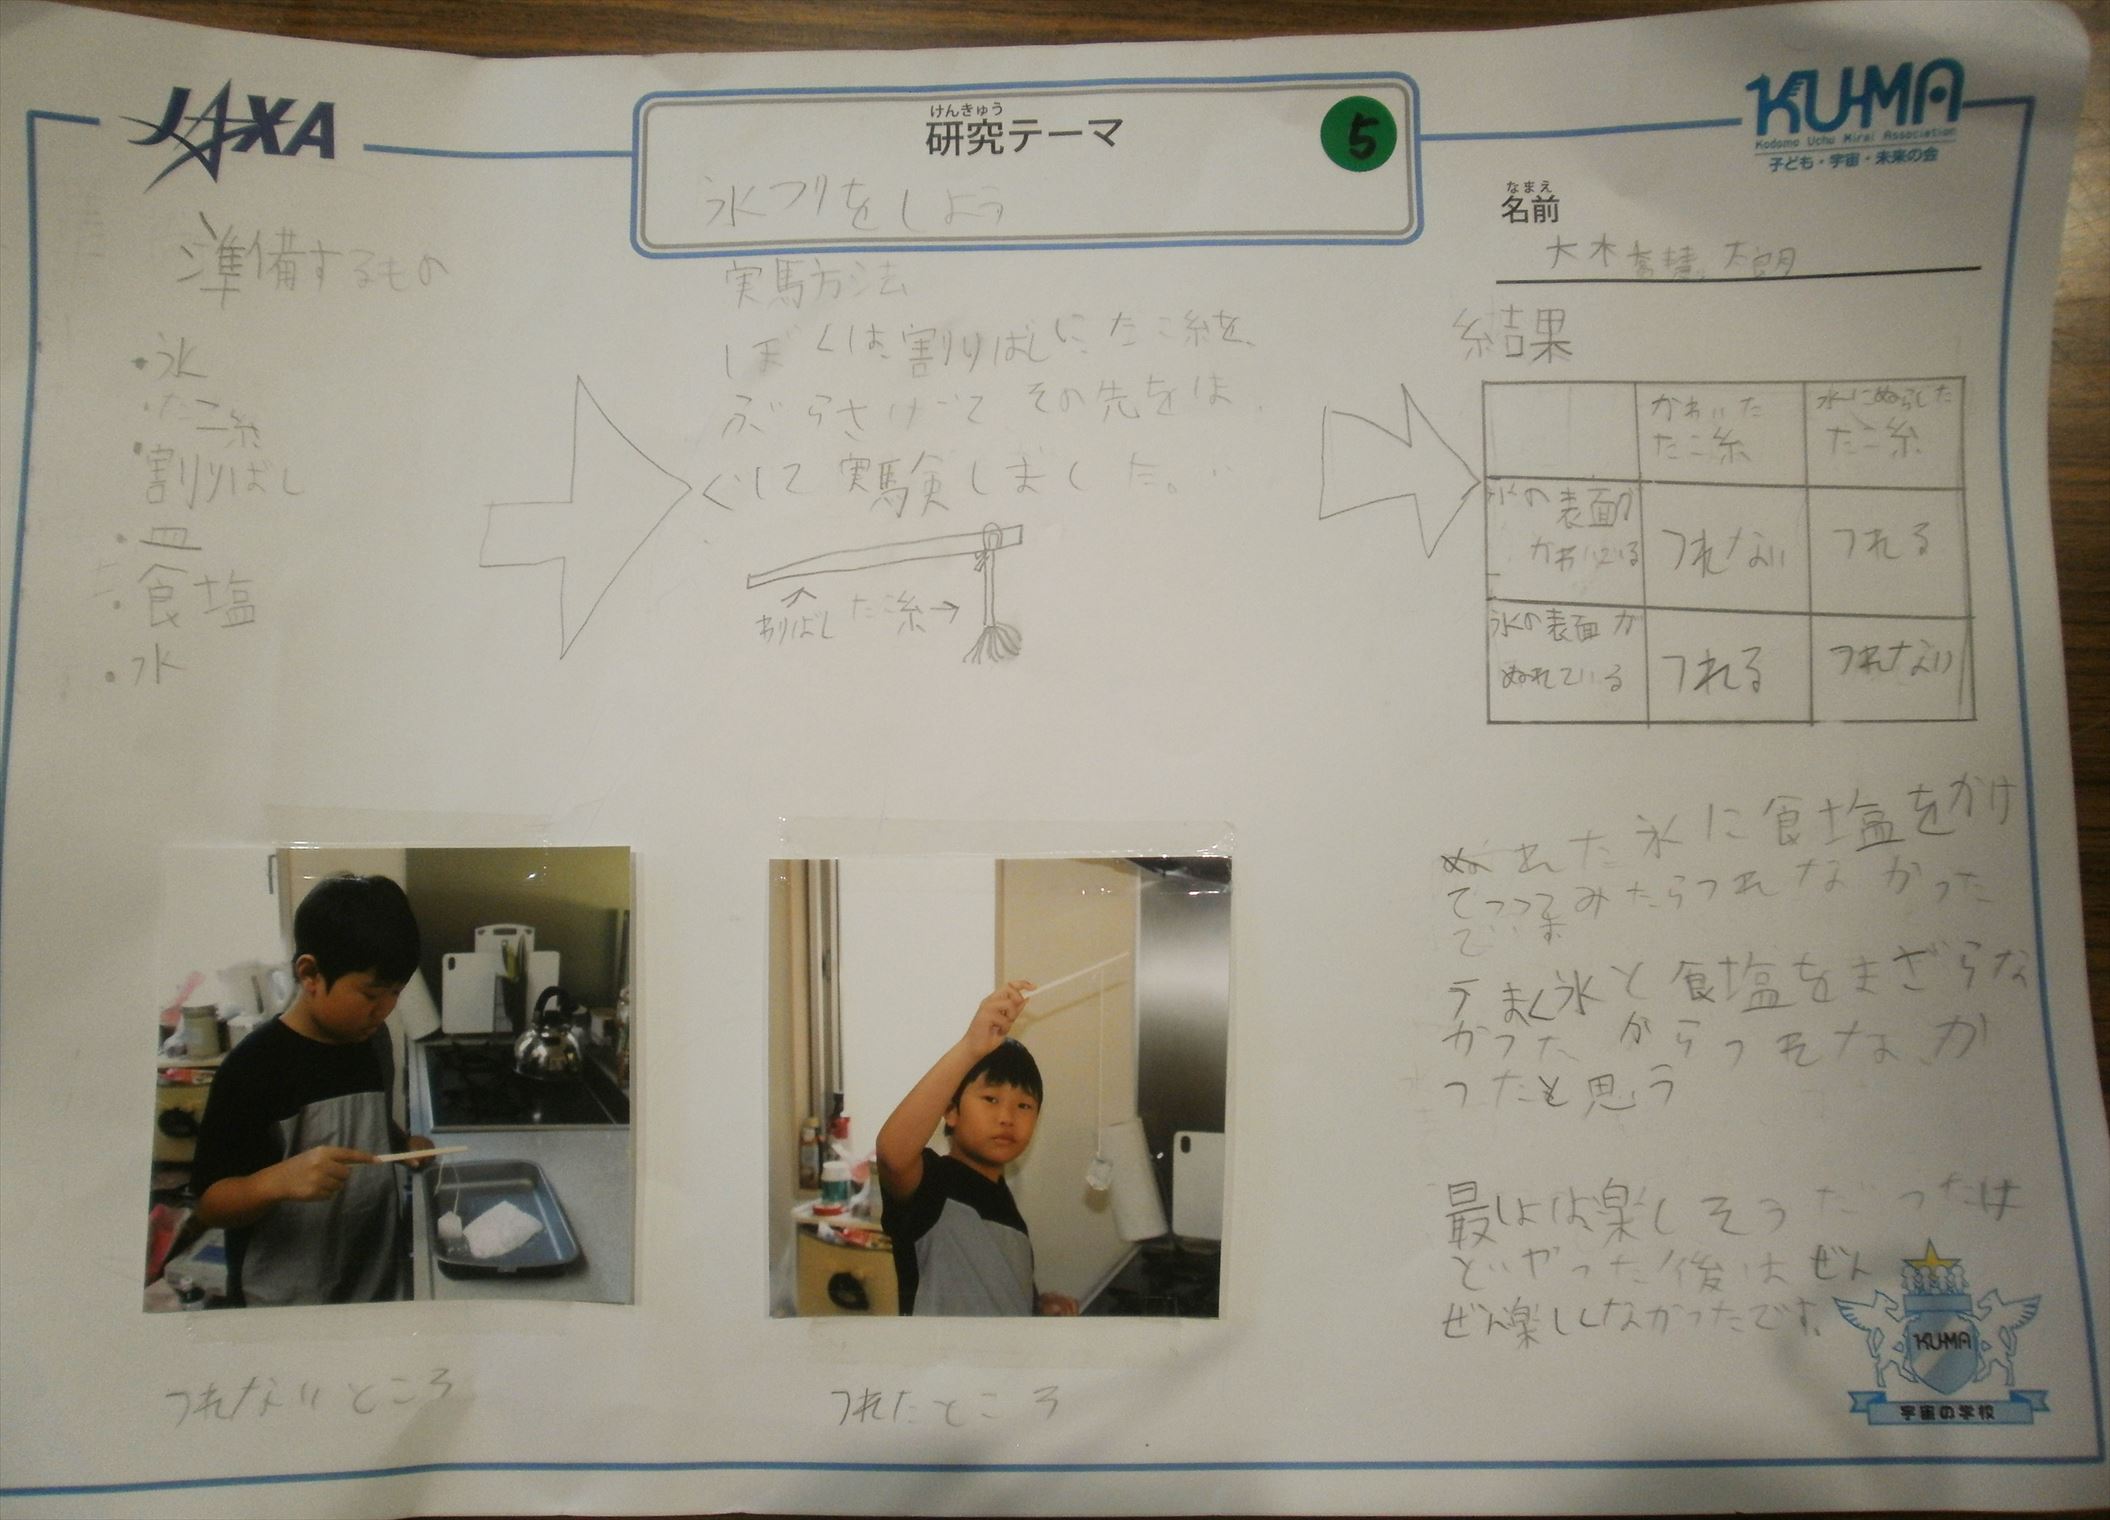 JAXA
けんきゅう
研究テーマ
5
氷つりをしよう
KU-MA
Kodomo Uchu Mirai Association
子ども・宇宙・未来の会
なまえ
名前
大木 太朗
準備するもの
・氷
・たこ糸
・割りばし
・皿
・食塩
・水
実馬方法
ぼくは、割りばしにたこ糸を、
ぶらさげて その先をほ
ぐして実験しました。
わりばし
たこ糸→
結果
かわいたたこ糸
水にぬらしたたこ糸
氷の表面が
かわいている
つれない
つれる
氷の表面が
ぬれている
つれる
つれない
ぬれた氷に食塩をかけ
てつってみたらつれなかった
うまく氷と食塩をまざらな
かったからつれなか
ったと思う
最しょは、楽しそうだったけ
どいやった後はぜん
ぜん楽ししなかったです。
つれないところ
つれたところ
KU-MA
宇宙の学校